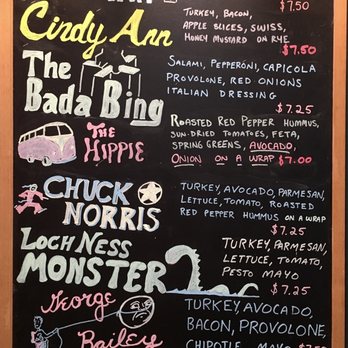 $7.50
Cindy Ann
TURKEY, BACON,
APPLE SLICES, SWISS,
HONEY MUSTARD ON RYE
$7.50
The
Bada Bing
SALAMI, PEPPERONI, CAPICOLA
PROVOLONE, RED ONIONS
ITALIAN DRESSING
$7.25
THE
HIPPIE
ROASTED RED PEPPER HUMMUS,
SUN-DRIED TOMATOES, FETA,
SPRING GREENS, AVOCADO,
ONION ON A WRAP $7.00
CHUCK
NORRIS
TURKEY, AVOCADO, PARMESAN,
LETTUCE, TOMATO, ROASTED
RED PEPPER HUMMUS ON A WRAP
$7.25
LOCH NESS
MONSTER
TURKEY, PARMESAN,
LETTUCE, TOMATO,
PESTO MAYO
$7.25
George
Bailey
TURKEY, AVOCADO,
BACON, PROVOLONE,
CHIPOTLE MAYO